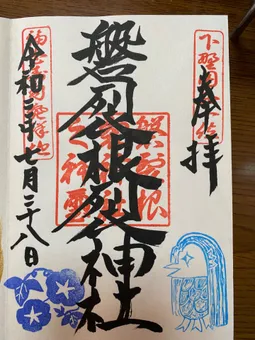 奉拝
磐裂根裂神社
磐裂根
裂神社
之神璽
令和二年七月二十八日